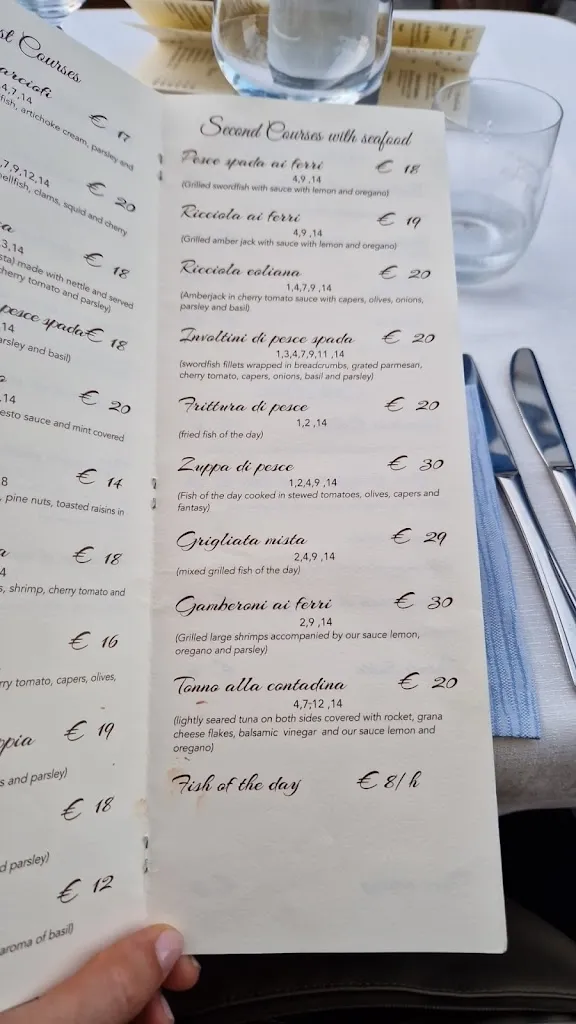 st Courses
4,7,14
fish, artichoke cream, parsley and
€ 17
7,9,12,14
shellfish, clams, squid and cherry
€ 20
3,14
made with nettle and served
cherry tomato and parsley)
€ 18
pesce spada € 18
14
parsley and basil)
€ 20
14
pesto sauce and mint covered
€ 14
8
, pine nuts, toasted raisins in
€ 18
4
s, shrimp, cherry tomato and
€ 16
rry tomato, capers, olives,
€ 19
s and parsley)
€ 18
d parsley)
€ 12
aroma of basil)
Second Courses with seafood
Pesce spada ai ferri € 18
4,9 ,14
(Grilled swordfish with sauce with lemon and oregano)
Ricciola ai ferri € 19
4,9 ,14
(Grilled amber jack with sauce with lemon and oregano)
Ricciola eoliana € 20
1,4,7,9 ,14
(Amberjack in cherry tomato sauce with capers, olives, onions,
parsley and basil)
Involtini di pesce spada € 20
1,3,4,7,9,11 ,14
(swordfish fillets wrapped in breadcrumbs, grated parmesan,
cherry tomato, capers, onions, basil and parsley)
Frittura di pesce € 20
1,2 ,14
(fried fish of the day)
Zuppa di pesce € 30
1,2,4,9 ,14
(Fish of the day cooked in stewed tomatoes, olives, capers and
fantasy)
Grigliata mista € 29
2,4,9 ,14
(mixed grilled fish of the day)
Gamberoni ai ferri € 30
2,9 ,14
(Grilled large shrimps accompanied by our sauce lemon,
oregano and parsley)
Tonno alla contadina € 20
4,7,12 ,14
(lightly seared tuna on both sides covered with rocket, grana
cheese flakes, balsamic vinegar and our sauce lemon and
oregano)
Fish of the day € 8/h